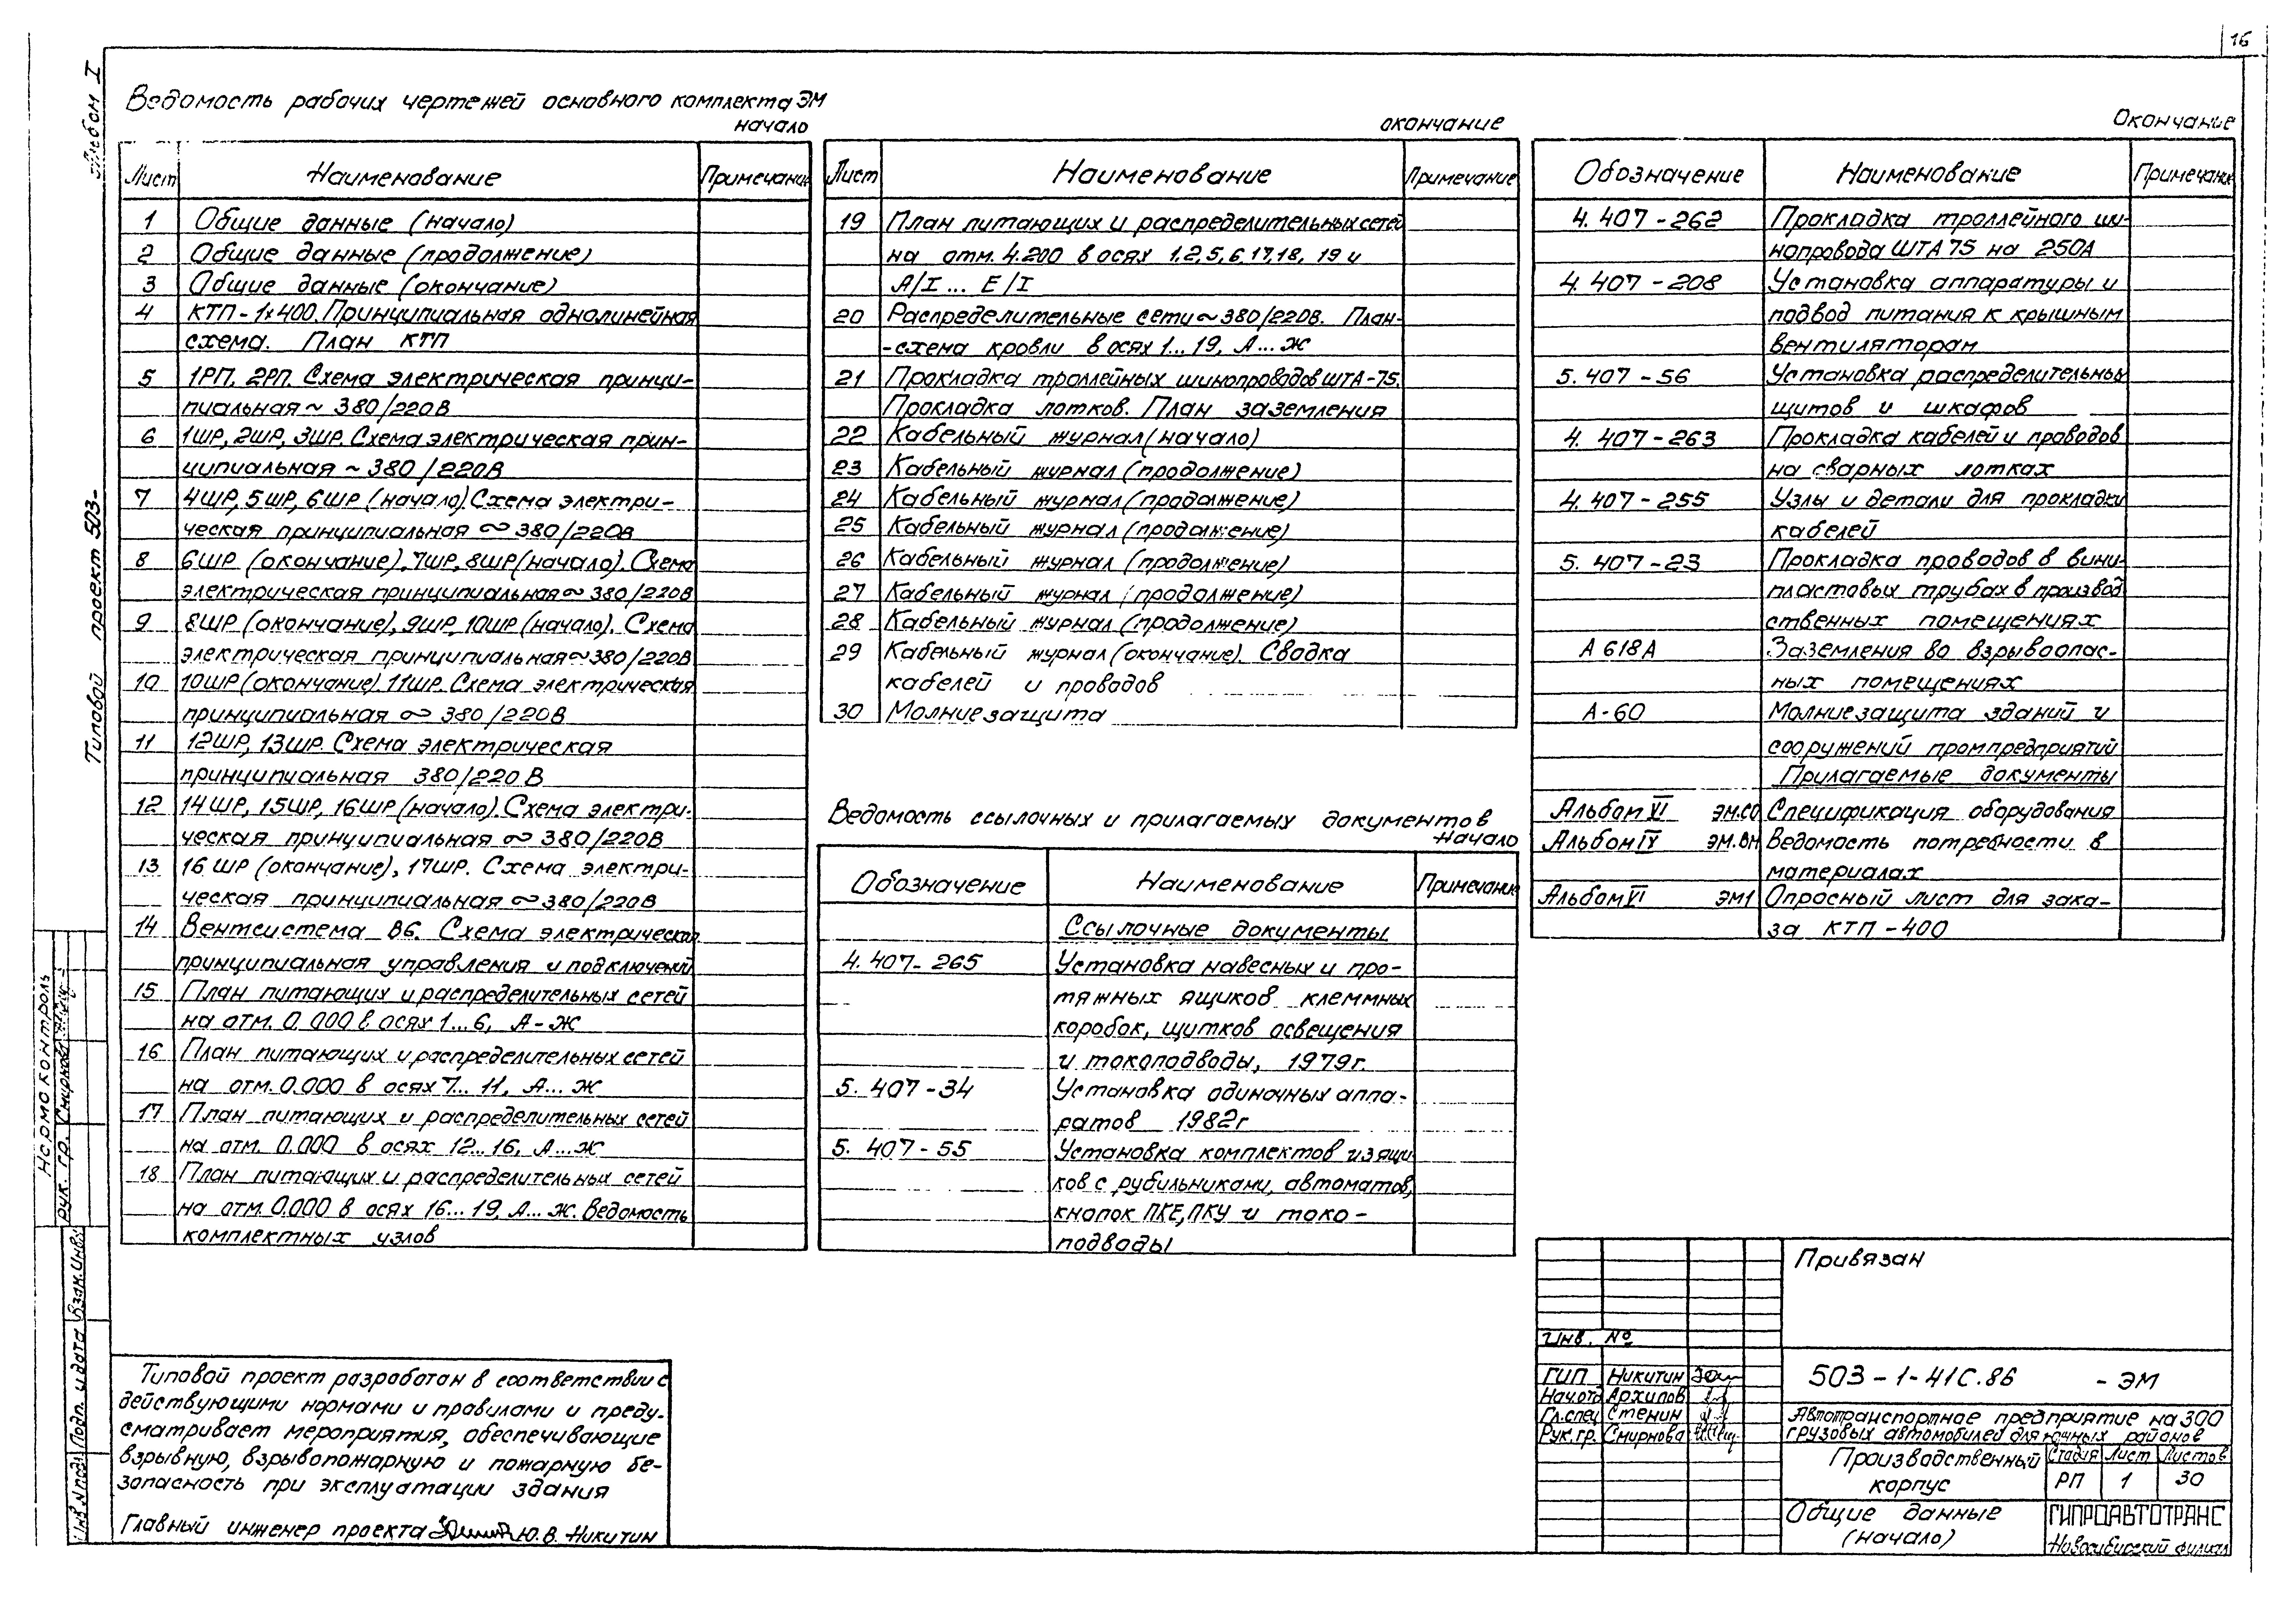 16
Альбом I
Типовой проект 503-
Ведомость рабочих чертежей основного комплекта ЭМ
начало
Лист Наименование Примечание
1 Общие данные (начало)
2 Общие данные (продолжение)
3 Общие данные (окончание)
4 КТП-1х400. Принципиальная однолинейная
схема. План КТП
5 1РП, 2РП. Схема электрическая принци-
пиальная ~ 380/220В
6 1ШР, 2ШР, 3ШР. Схема электрическая прин-
ципиальная ~ 380/220В
7 4ШР, 5ШР, 6ШР (начало). Схема электри-
ческая принципиальная ~ 380/220В
8 6ШР (окончание), 7ШР, 8ШР (начало). Схема
электрическая принципиальная ~ 380/220В
9 8ШР (окончание), 9ШР, 10ШР (начало). Схема
электрическая принципиальная ~ 380/220В
10 10ШР (окончание) 11ШР. Схема электрическая
принципиальная ~ 380/220В
11 12ШР, 13ШР. Схема электрическая
принципиальная 380/220В
12 14ШР, 15ШР, 16ШР (начало). Схема электри-
ческая принципиальная ~ 380/220В
13 16 ШР (окончание), 17ШР. Схема электри-
ческая принципиальная ~ 380/220В
14 Вентсистема В6. Схема электрическая
принципиальная управления и подключений
15 План питающих и распределительных сетей
на отм. 0.000 в осях 1...6, А-Ж
16 План питающих и распределительных сетей
на отм. 0.000 в осях 7...11, А...Ж
17 План питающих и распределительных сетей
на отм. 0.000 в осях 12...16, А...Ж
18 План питающих и распределительных сетей
на отм. 0.000 в осях 16...19, А...Ж. Ведомость
комплектных узлов
окончание
Лист Наименование Примечание
19 План питающих и распределительных сетей
на отм. 4.200 в осях 1,2,5,6,17,18, 19 и
А/I... Е/I
20 Распределительные сети ~ 380/220В. План-
-схема кровли в осях 1...19, А...Ж
21 Прокладка троллейных шинопроводов ШТА-75.
Прокладка лотков. План заземления
22 Кабельный журнал (начало)
23 Кабельный журнал (продолжение)
24 Кабельный журнал (продолжение)
25 Кабельный журнал (продолжение)
26 Кабельный журнал (продолжение)
27 Кабельный журнал (продолжение)
28 Кабельный журнал (продолжение)
29 Кабельный журнал (окончание). Сводка
кабелей и проводов
30 Молниезащита
Ведомость ссылочных и прилагаемых документов
Начало
Обозначение Наименование Примечание
Ссылочные документы
4.407-265 Установка навесных и про-
тяжных ящиков клеммных
коробок, щитков освещения
и токоподводы, 1979г.
5.407-34 Установка одиночных аппа-
ратов 1982г
5.407-55 Установка комплектов из ящи
ков с рубильниками, автоматов,
кнопок ПКЕ, ПКУ и токо-
подводы
Окончание
Обозначение Наименование Примечание
4.407-262 Прокладка троллейного ши-
нопровода ШТА 75 на 250А
4.407-208 Установка аппаратуры и
подвод питания к крышным
вентиляторам
5.407-56 Установка распределительных
щитов и шкафов
4.407-263 Прокладка кабелей и проводов
на сварных лотках
4.407-255 Узлы и детали для прокладки
кабелей
5.407-23 Прокладка проводов в вини-
пластовых трубах в производ
ственных помещениях
А 618А Заземления во взрывоопас-
ных помещениях
А-60 Молниезащита зданий и
сооружений промпредприятий
Прилагаемые документы
Альбом VI ЭМ.СО Спецификация оборудования
Альбом IV ЭМ.ВМ Ведомость потребности в
материалах
Альбом VI ЭМ1 Опросный лист для зака-
за КТП-400
Нормоконтроль
Рук. гр. Смирнова
Взам. инв.
Подп. и дата
Инв. № подл.
Типовой проект разработан в соответствии с
действующими нормами и правилами и преду-
сматривает мероприятия, обеспечивающие
взрывную, взрывопожарную и пожарную бе-
зопасность при эксплуатации здания
Главный инженер проекта Ю.В. Никитин
Привязан
Инв. №
ГИП Никитин
Нач.отд Архипов
Гл.спец Стенин
Рук.гр. Смирнова
503-1-41С.86 -ЭМ
Автотранспортное предприятие на 300
грузовых автомобилей для южных районов
Производственный
корпус
Стадия Лист Листов
РП 1 30
Общие данные
(начало)
ГИПРОАВТОТРАНС
Новосибирский филиал